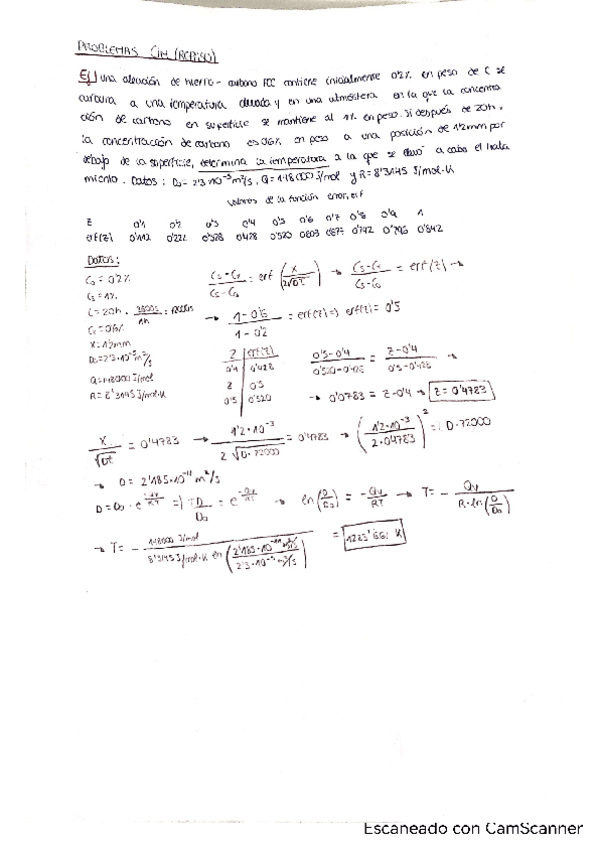 PROBLEMAS CIM (REPASO)
Ej) una aleación de hierro-carbono FCC contiene inicialmente 0'2% en peso de C se
carbura a una temperatura elevada y en una atmósfera en la que la concentra
ción de carbono en superficie se mantiene al 1% en peso. Si después de 20h,
la concentración de carbono es 0'6% en peso a una posición de 1'2mm por
debajo de la superficie, determina la temperatura a la que se llevó a cabo el trata
miento. Datos: D₀ = 2'3·10⁻⁵ m²/s, Q = 148000 J/mol y R = 8'3145 J/mol·K
valores de la función error, erf
Z 0'1 0'2 0'3 0'4 0'5 0'6 0'7 0'8 0'9 1
erf(z) 0'112 0'222 0'328 0'428 0'520 0'603 0'677 0'742 0'796 0'842
Datos:
C₀ = 0'2%
Cs = 1%
t = 20h · 3600s / 1h = 72000s
Cx = 0'6%
X = 1'2mm
D₀ = 2'3·10⁻⁵ m²/s
Q = 148000 J/mol
R = 8'3145 J/mol·K
Cs-Cx / Cs-C₀ = erf (x / 2√Dt) → Cs-Cx / Cs-C₀ = erf(z) →
→ 1-0'6 / 1-0'2 = erf(z) => erf(z) = 0'5
Z | erf(z)
0'4 | 0'428
Z | 0'5
0'5 | 0'520
0'5-0'4 / 0'520-0'428 = Z-0'4 / 0'5-0'428 →
→ 0'0783 = Z-0'4 → Z = 0'4783
X / √Dt = 0'4783 → 1'2·10⁻³ / 2√D·72000 = 0'4783 → (1'2·10⁻³ / 2·0'4783)² = D·72000
→ D = 2'185·10⁻¹¹ m²/s
D = D₀ · e^(-Qv/RT) => D / D₀ = e^(-Qv/RT) → ln(D/D₀) = -Qv/RT → T = - Qv / R·ln(D/D₀)
→ T = - 148000 J/mol / 8'3145 J/mol·K ln(2'185·10⁻¹¹ m²/s / 2'3·10⁻⁵ m²/s) = 1283'661 K
Escaneado con CamScanner